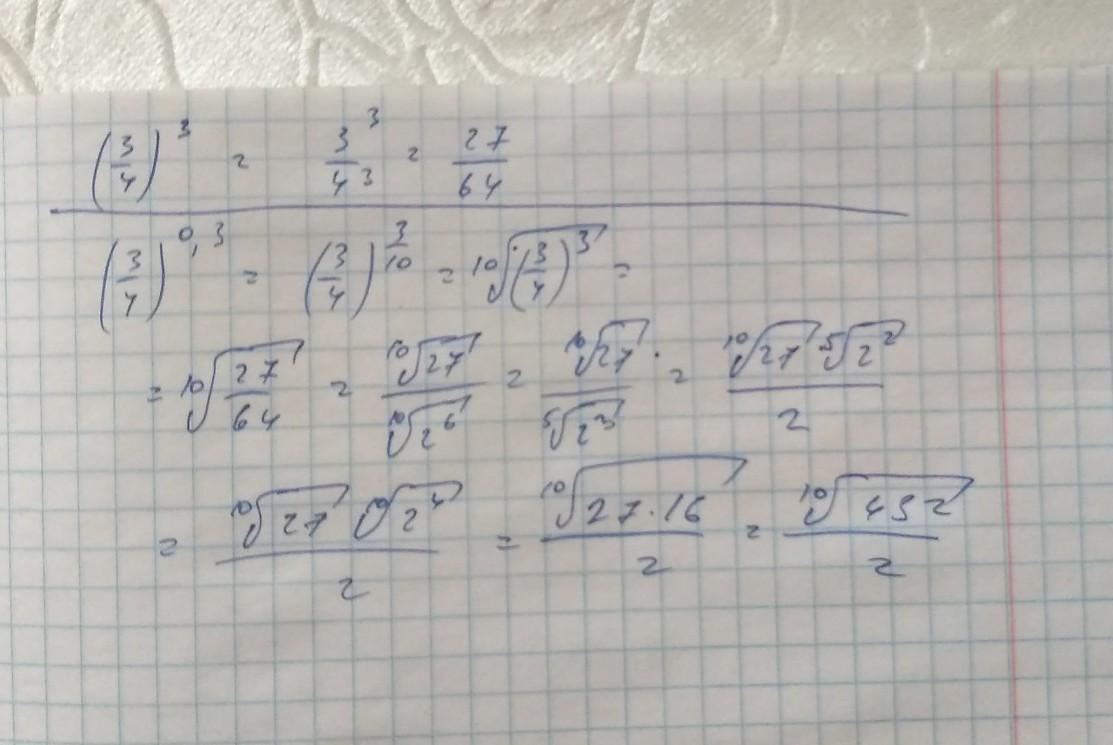 (3/4)³ = 3³/4³ = 27/64
(3/4)^0,3 = (3/4)^(3/10) = ¹⁰√(3/4)³ =
= ¹⁰√(27/64) = ¹⁰√27 / ¹⁰√2⁶ = ¹⁰√27 / ⁵√2³ = ¹⁰√27 ⁵√2² / 2
= ¹⁰√27 ¹⁰√2⁴ / 2 = ¹⁰√27·16 / 2 = ¹⁰√432 / 2